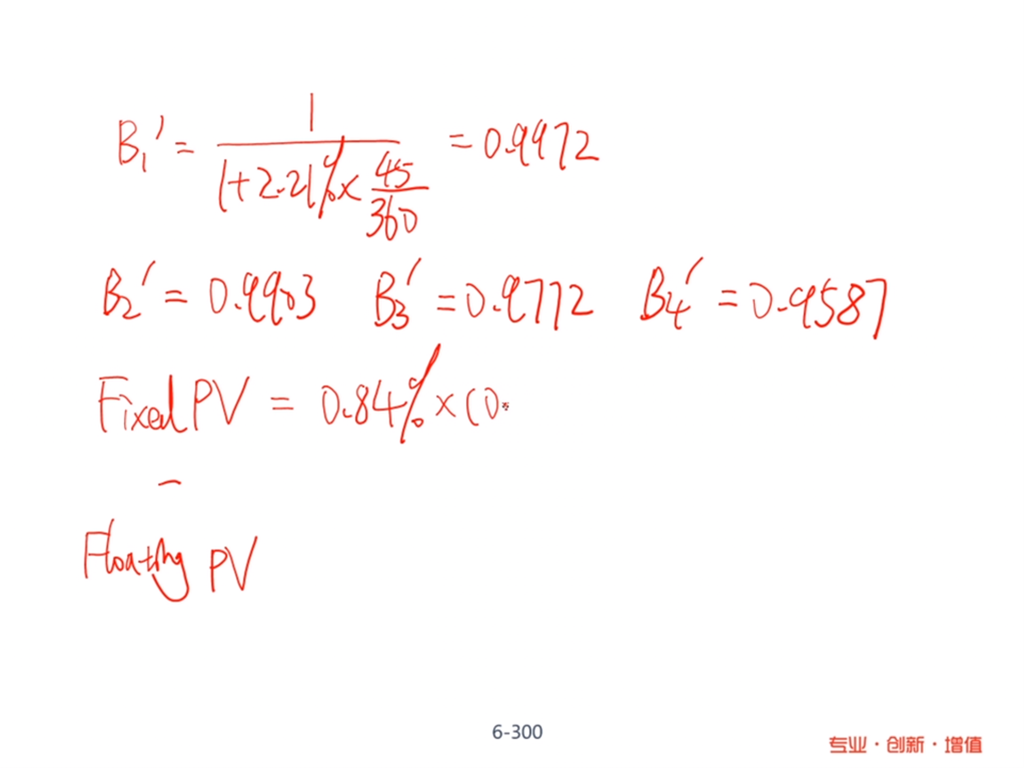 B₁' = 1 / (1+2.21% × 45/360) = 0.9972
B₂' = 0.9903 B₃' = 0.9772 B₄' = 0.9587
Fixed PV = 0.84% × (0.
−
Floating PV
6-300
专业·创新·增值